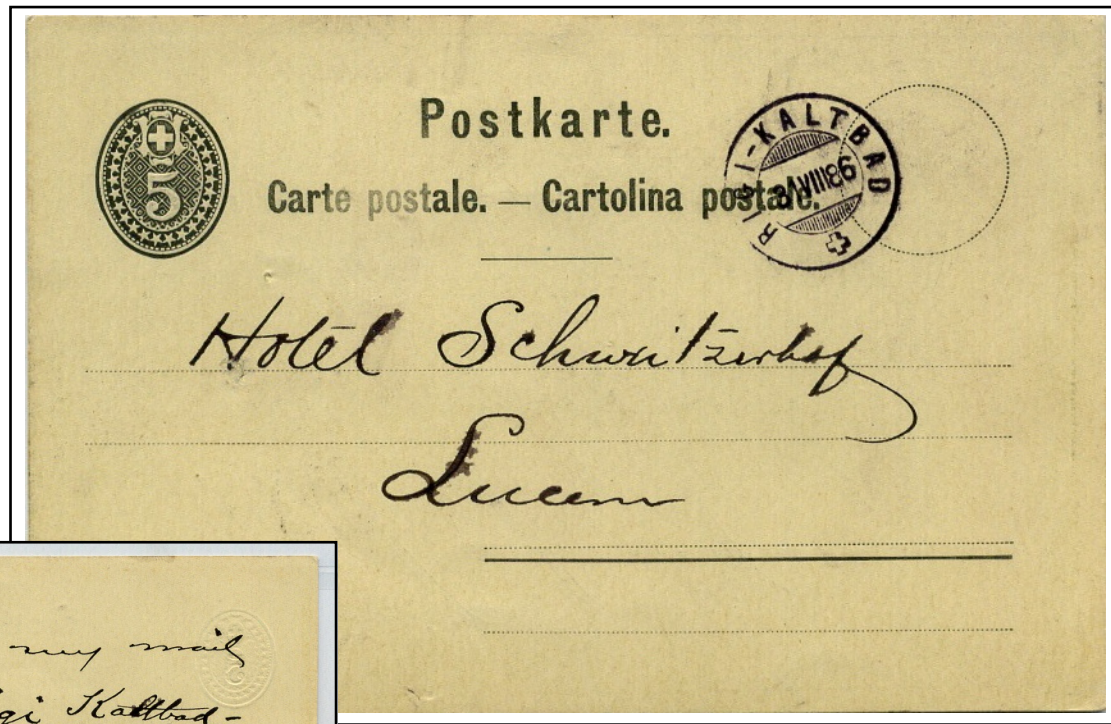 Postkarte.
5
Carte postale. — Cartolina postale.
RIGI-KALTBAD
VIII 86
Hotel Schweitzerhof
Lucern
my mail
gi Kaltbad-